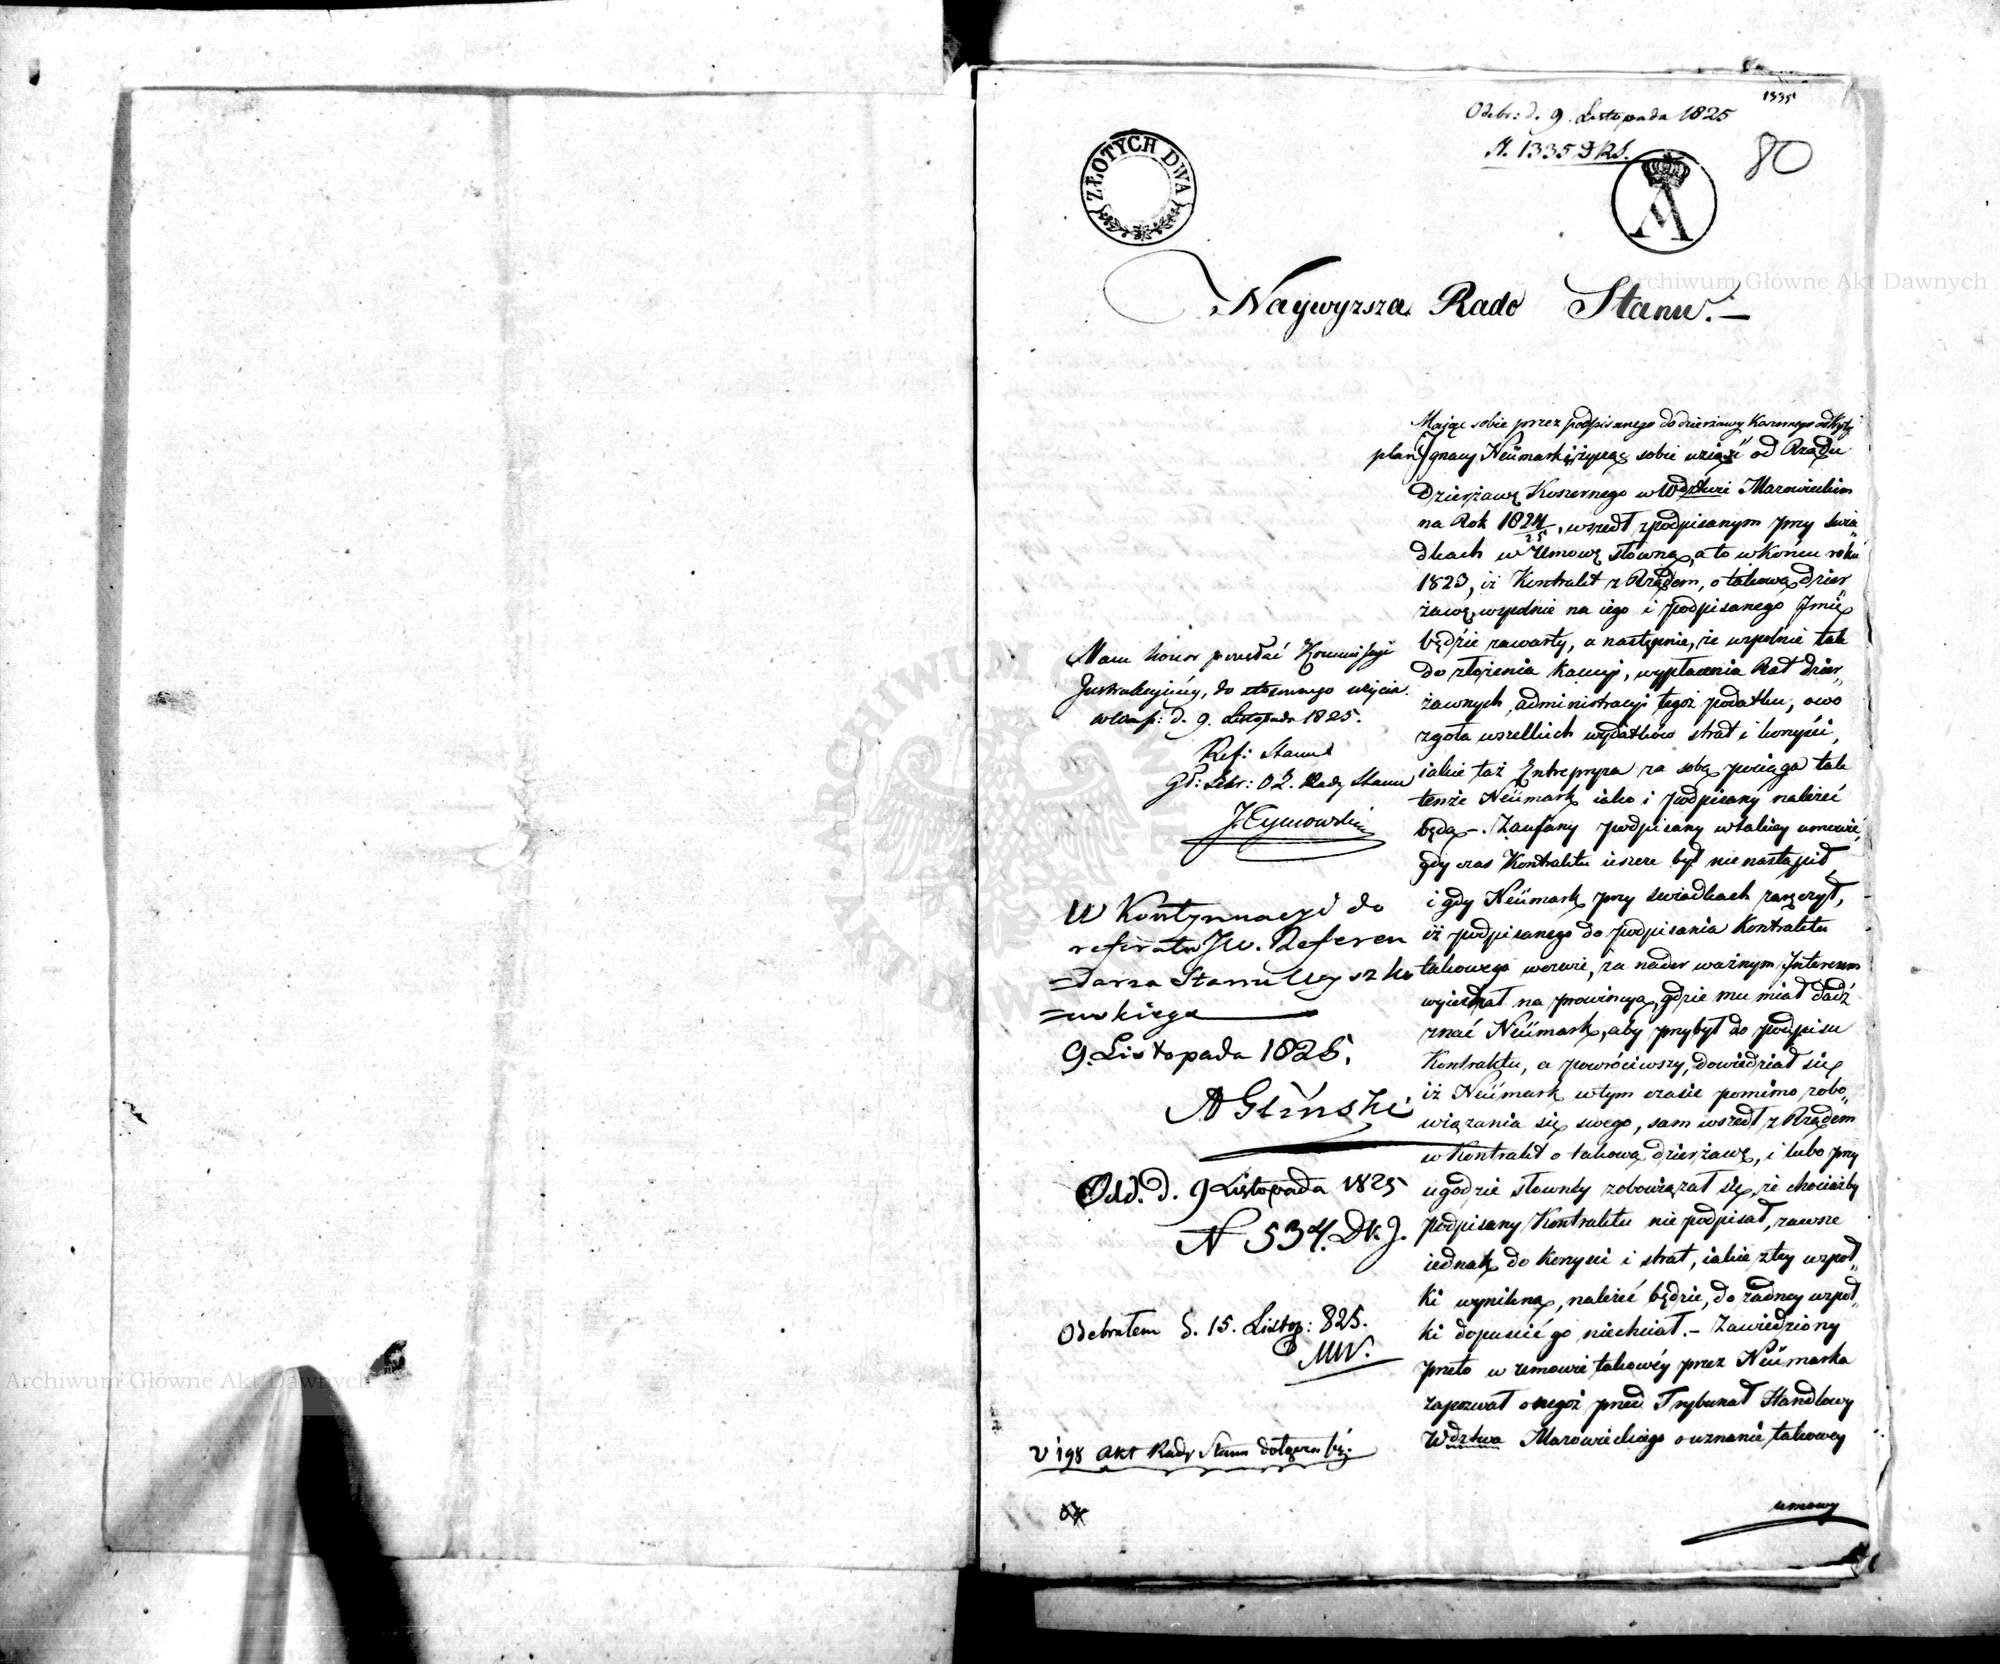 1335
Odebr: d. 9. Listopada 1825
N. 1335 D R S.
80
ZŁOTYCH DWA
Naywyzsza Rado Stanu. —
Mając sobie przez podpisanego do dzierżawy Koszernego odkryty
plan Ignacy Neümark, życząc sobie wziąść od Rządu
Dzierżawę Koszernego w Wdztwie Mazowieckim
na Rok 1824/25, wszedł z podpisanym przy świa„
dkach w Umowę słowną, a to w Końcu roku
1823, iż Kontrakt z Rządem, o takową dzier
żawę, wspólnie na iego i podpisanego Imię
będzie zawarty, a następnie, że wspólnie tak
do złożenia kaucyi, wypłacenia Rat dzier„
żawnych, administracyi tegoż podatku, owo
zgoła wszelkich wydatków strat i korzyści,
iakie taż Entrepryza za sobą pociąga tak
tenże Neümark iako i podpisany należeć
będą —. Zaufany podpisany w takiey umowie,
gdy czas Kontraktu ieszcze był nie nastąpił,
i gdy Neümark przy świadkach zaręczył,
iż podpisanego do podpisania Kontraktu
takowego wezwie, za nader ważnym Interesem
wyiechał na prowincyą, gdzie mu miał dadź
znać Neümark, aby przybył do podpisu
Kontraktu, a powróciwszy, dowiedział się
iż Neümark w tym czasie pomimo zobo„
wiązania się swego, sam wszedł z Rządem
w Kontrakt o takową dzierżawę, i lubo przy
ugodzie słowney zobowiązał się, że chociażby
podpisany Kontraktu nie podpisał, zawsze
iednak do korzyści i strat, iakie z tey wspoł„
ki wynikną, należeć będzie, do żadney wspoł„
ki dopuścić go niechciał. — Zawiedziony
przeto w umowie takowéy przez Neümarka
zapozwał onegoż przed Trybunał Handlowy
Wdztwa Mazowieckiego o uznanie takowey
umowy
Mam honor przesłać Kommissyi
Instrukcyiney, do stosownego użycia.
w Warsz: d. 9. Listopada 1825.
Ref: Stanu
Gł: Sekr: O Z. Rady Stanu
J Tymowski
W Kontynuacyi do
referatu JW. Referen
=darza Stanu Wyszko
=wskiego
9. Listopada 1825.
A Gliński
Odd. d. 9 Listopada 1825
N 534. DK. J.
Odebrałem d. 15. Listop: 825.
MW.
akt Rady Stanu
Archiwum Główne Akt Dawnych
Archiwum Główne Akt Dawnych